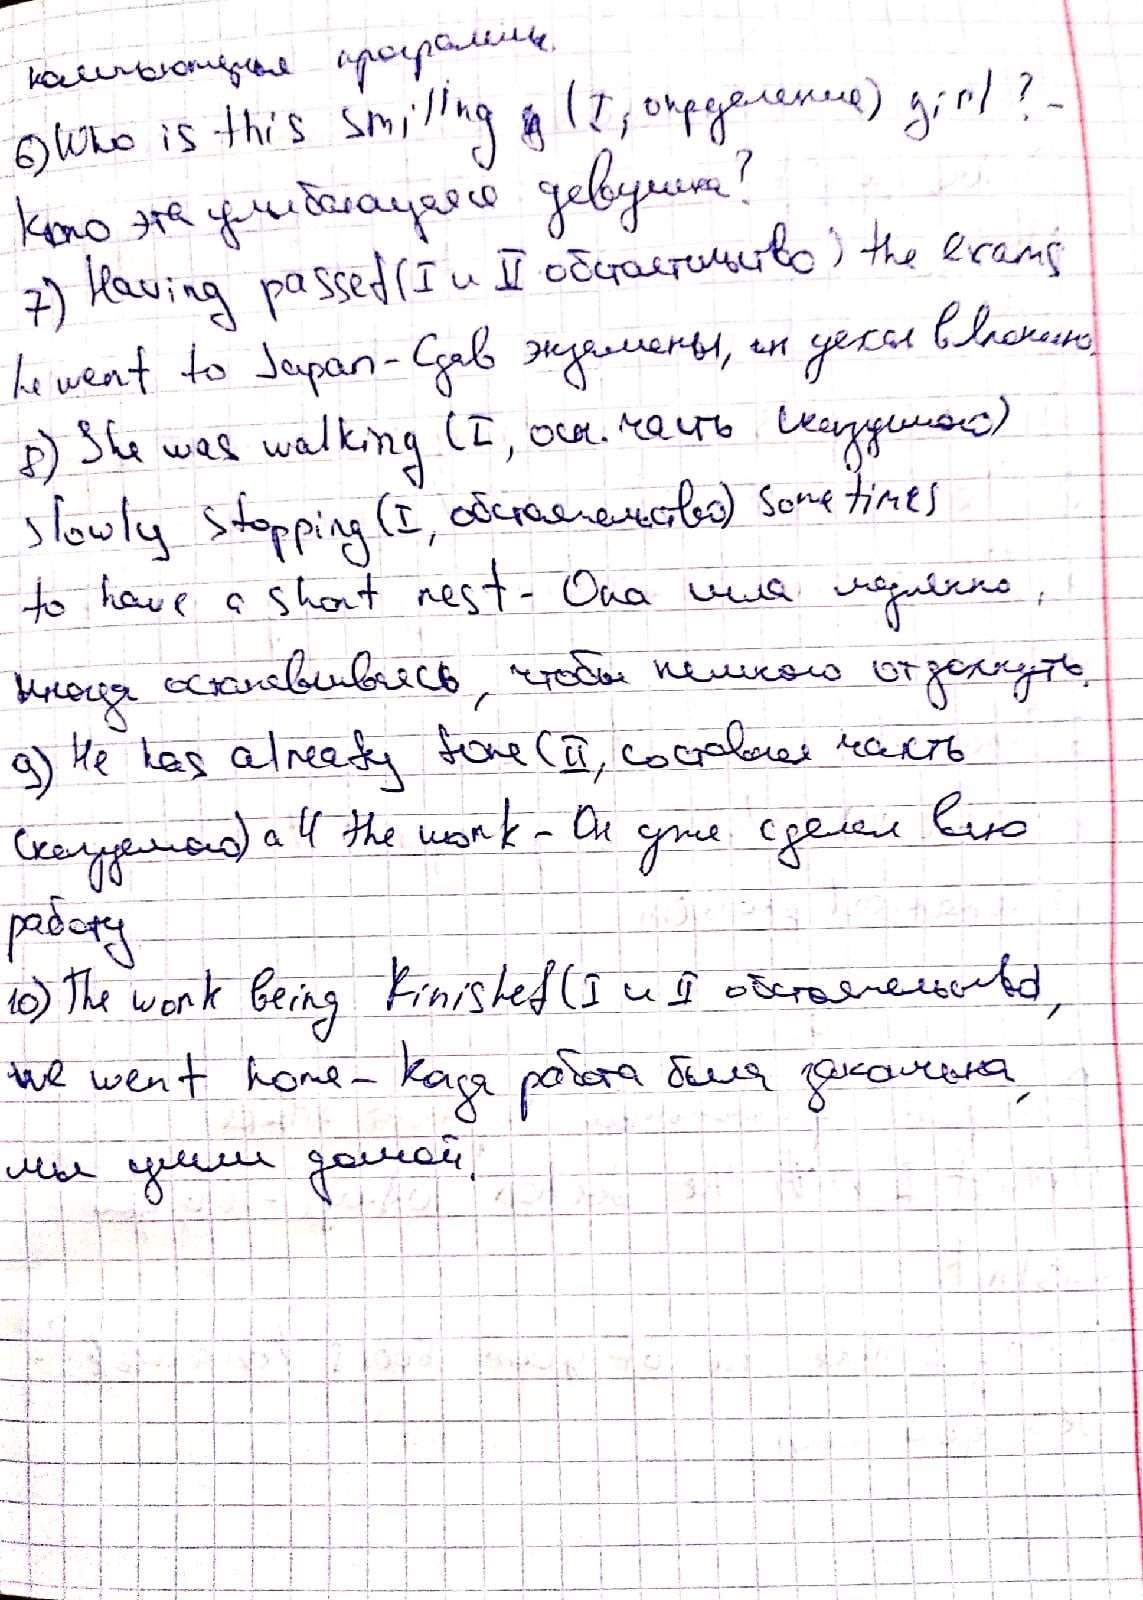 компьютерная программы.
6) Who is this smiling (I, определение) girl? -
Кто эта улыбающаяся девушка?
7) Having passed (I и II обстоятельство) the exams
he went to Japan - Сдав экзамены, он уехал в Японию.
8) She was walking (I, осн. часть сказуемого)
slowly stopping (I, обстоятельство) sometimes
to have a short rest - Она шла медленно,
иногда останавливаясь, чтобы немного отдохнуть.
9) He has already done (II, составная часть
сказуемого) all the work - Он уже сделал всю
работу
10) The work being finished (I и II обстоятельство),
we went home - Когда работа была закончена,
мы ушли домой.